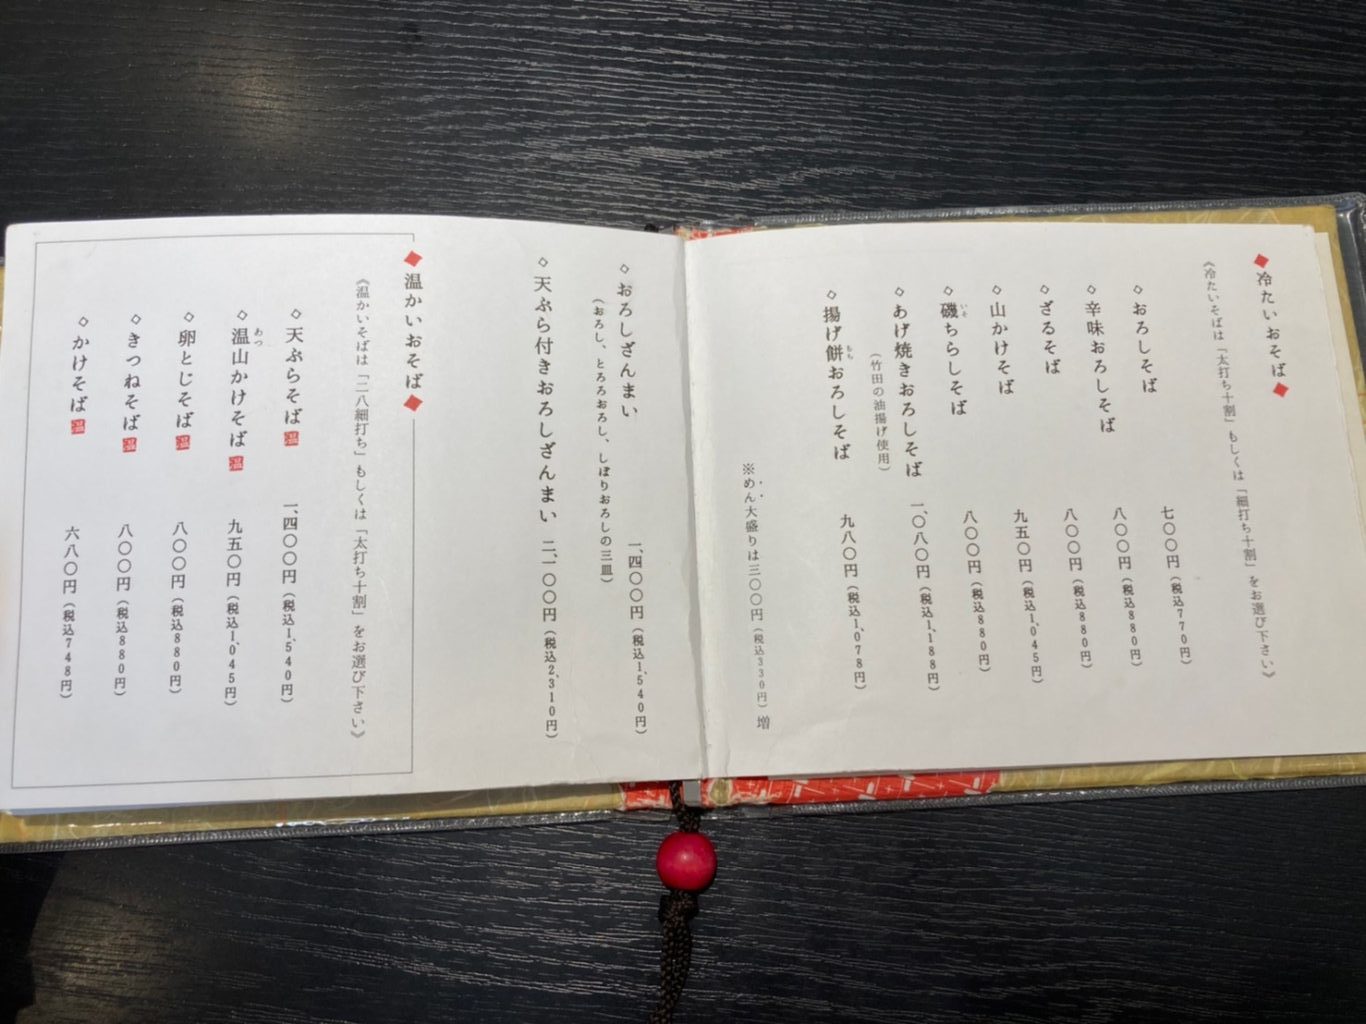 ◆冷たいおそば◆
《冷たいそばは「太打ち十割」もしくは「細打ち十割」をお選び下さい》
◇おろしそば 七〇〇円(税込770円)
◇辛味おろしそば 八〇〇円(税込880円)
◇ざるそば 八〇〇円(税込880円)
◇山かけそば 九五〇円(税込1,045円)
◇磯ちらしそば 八〇〇円(税込880円)
いそ
◇あげ焼きおろしそば 一、〇八〇円(税込1,188円)
(竹田の油揚げ使用)
◇揚げ餅おろしそば 九八〇円(税込1,078円)
もち
※めん大盛りは三〇〇円(税込330円)増
◇おろしざんまい 一、四〇〇円(税込1,540円)
(おろし、とろろおろし、しぼりおろしの三皿)
◇天ぷら付きおろしざんまい 二、一〇〇円(税込2,310円)
◆温かいおそば◆
《温かいそばは「二八細打ち」もしくは「太打ち十割」をお選び下さい》
◇天ぷらそば 温 一、四〇〇円(税込1,540円)
◇温山かけそば 温 九五〇円(税込1,045円)
あつ
◇卵とじそば 温 八〇〇円(税込880円)
◇きつねそば 温 八〇〇円(税込880円)
◇かけそば 温 六八〇円(税込748円)